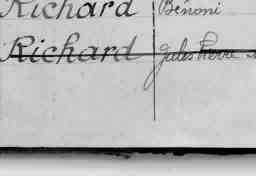 Richard Bénoni
Richard Jules Pierre